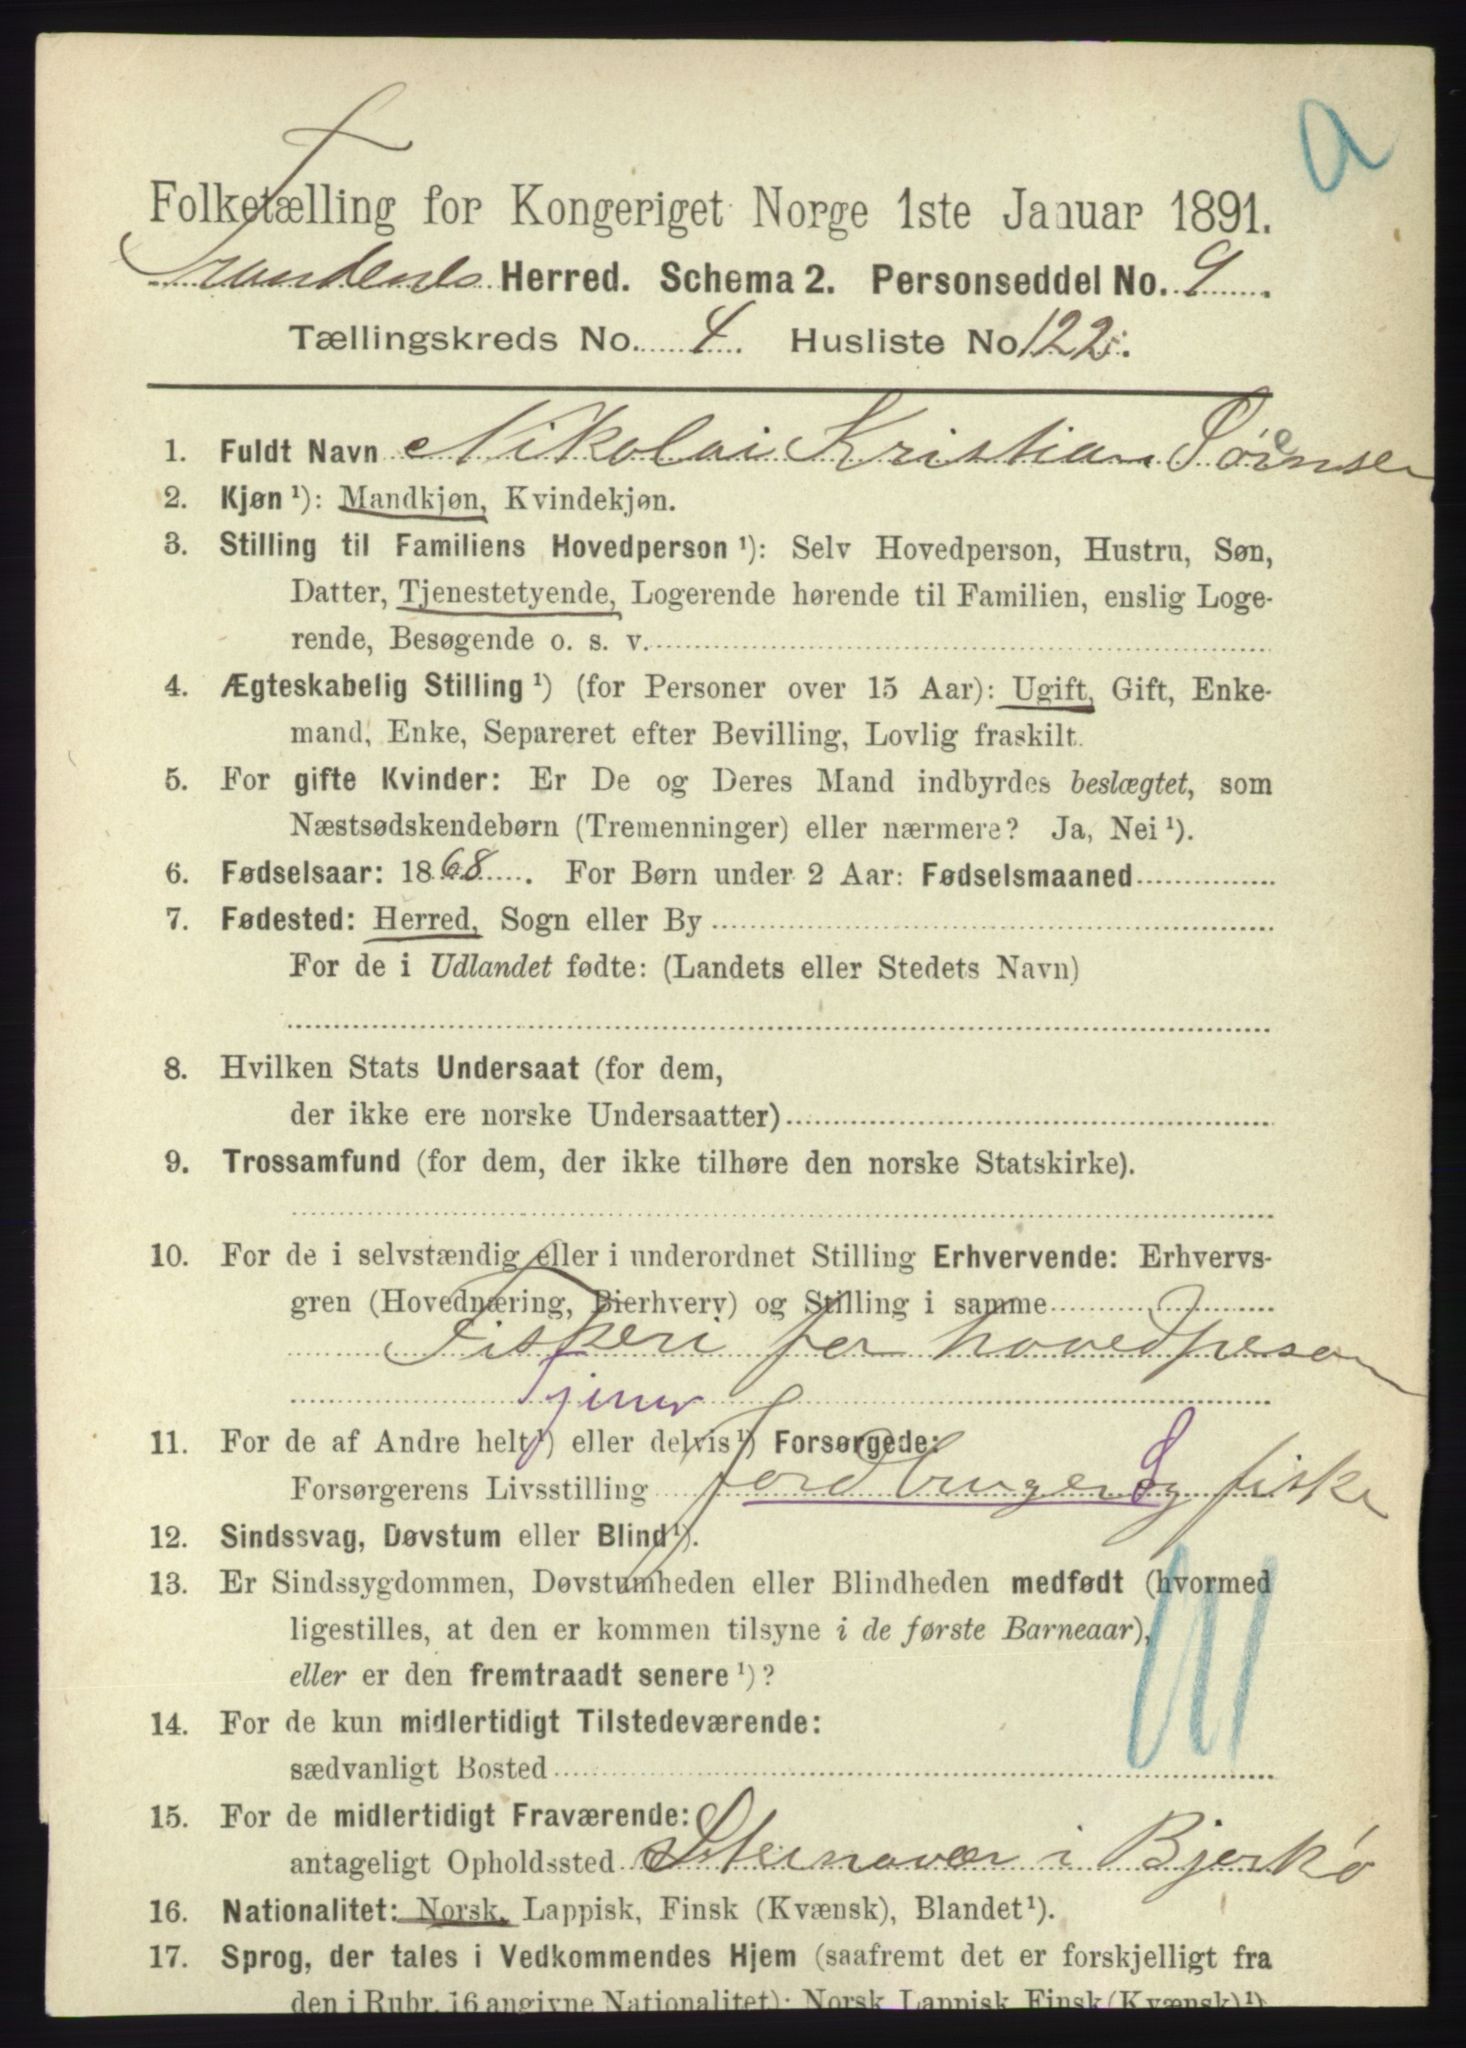 a
Folketælling for Kongeriget Norge 1ste Januar 1891.
Trondenes Herred. Schema 2. Personseddel No. 9.
Tællingskreds No. 4. Husliste No 122.
1. Fuldt Navn Nikolai Kristian Sørensen
2. Kjøn ¹): Mandkjøn, Kvindekjøn.
3. Stilling til Familiens Hovedperson ¹): Selv Hovedperson, Hustru, Søn,
Datter, Tjenestetyende, Logerende hørende til Familien, enslig Loge-
rende, Besøgende o. s. v.
4. Ægteskabelig Stilling ¹) (for Personer over 15 Aar): Ugift, Gift, Enke-
mand, Enke, Separeret efter Bevilling, Lovlig fraskilt.
5. For gifte Kvinder: Er De og Deres Mand indbyrdes beslægtet, som
Næstsødskendebørn (Tremenninger) eller nærmere? Ja, Nei ¹).
6. Fødselsaar: 1868. For Børn under 2 Aar: Fødselsmaaned
7. Fødested: Herred, Sogn eller By
For de i Udlandet fødte: (Landets eller Stedets Navn)
8. Hvilken Stats Undersaat (for dem,
der ikke ere norske Undersaatter)
9. Trossamfund (for dem, der ikke tilhøre den norske Statskirke).
10. For de i selvstændig eller i underordnet Stilling Erhvervende: Erhvervs-
gren (Hovednæring, Bierhverv) og Stilling i samme
Fiskeri for hovedpeson
Tjener
11. For de af Andre helt ¹) eller delvis ¹) Forsørgede:
Forsørgerens Livsstilling Jordbruger og fisker
12. Sindssvag, Døvstum eller Blind ¹).
13. Er Sindssygdommen, Døvstumheden eller Blindheden medfødt (hvormed
ligestilles, at den er kommen tilsyne i de første Barneaar),
eller er den fremtraadt senere ¹)?
14. For de kun midlertidigt Tilstedeværende:
sædvanligt Bosted
15. For de midlertidigt Fraværende:
antageligt Opholdssted Steinavær i Bjerkø
16. Nationalitet: Norsk, Lappisk, Finsk (Kvænsk), Blandet ¹).
17. Sprog, der tales i Vedkommendes Hjem (saafremt det er forskjelligt fra
den i Rubr. 16 angivne Nationalitet): Norsk Lappisk Finsk (Kvænsk) ¹).